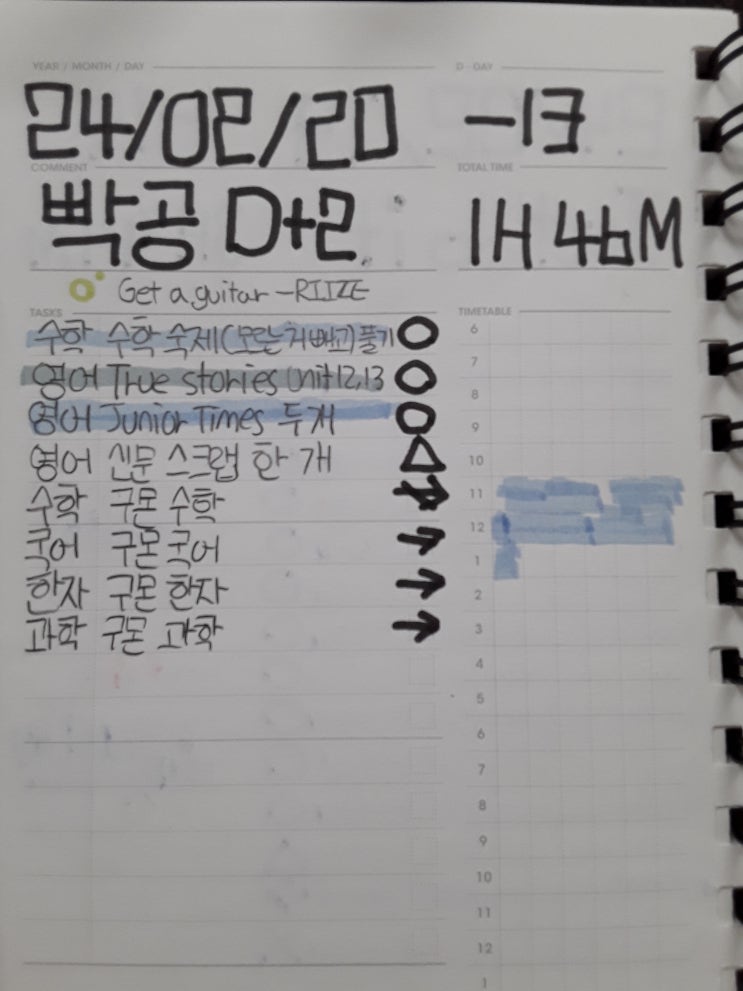 YEAR / MONTH / DAY
D-DAY
24/02/20
-13
COMMENT
TOTAL TIME
빡공 D+2
1H 46M
Get a guitar -RIIZE
TASKS
TIMETABLE
수학 수학 숙제(모르는거 빼고) 풀기
영어 True stories Unit 12,13
영어 Junior Times 두 개
영어 신문 스크랩 한 개
수학 구몬 수학
국어 구몬 국어
한자 구몬 한자
과학 구몬 과학
6
7
8
9
10
11
12
1
2
3
4
5
6
7
8
9
10
11
12
1